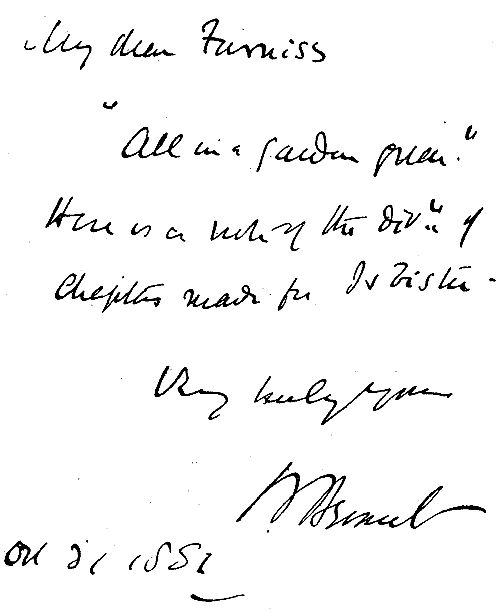 My dear Furniss
"All in a garden green."
Here is a note of the divⁿ of
Chapters made for Isbister -
Very truly yours
W Besant
Oct 21 1882